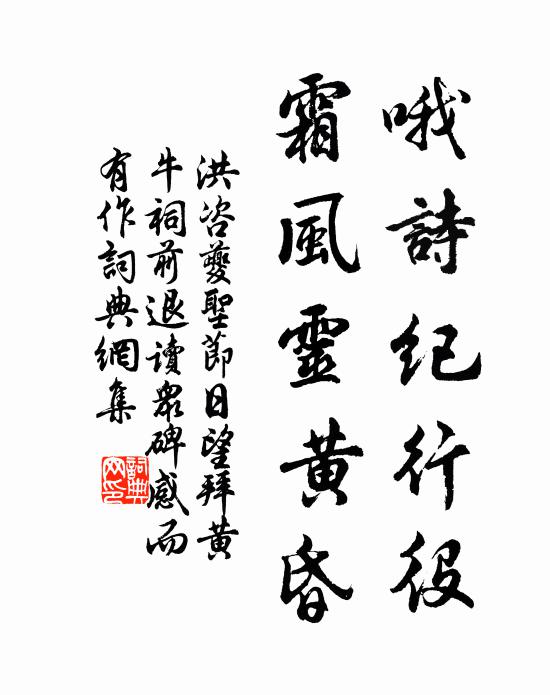 哦詩紀行役
霜風靈黃昏
洪咨夔聖節日望拜黃
牛祠前退讀眾碑感而
有作詞典網集
詞典
网印